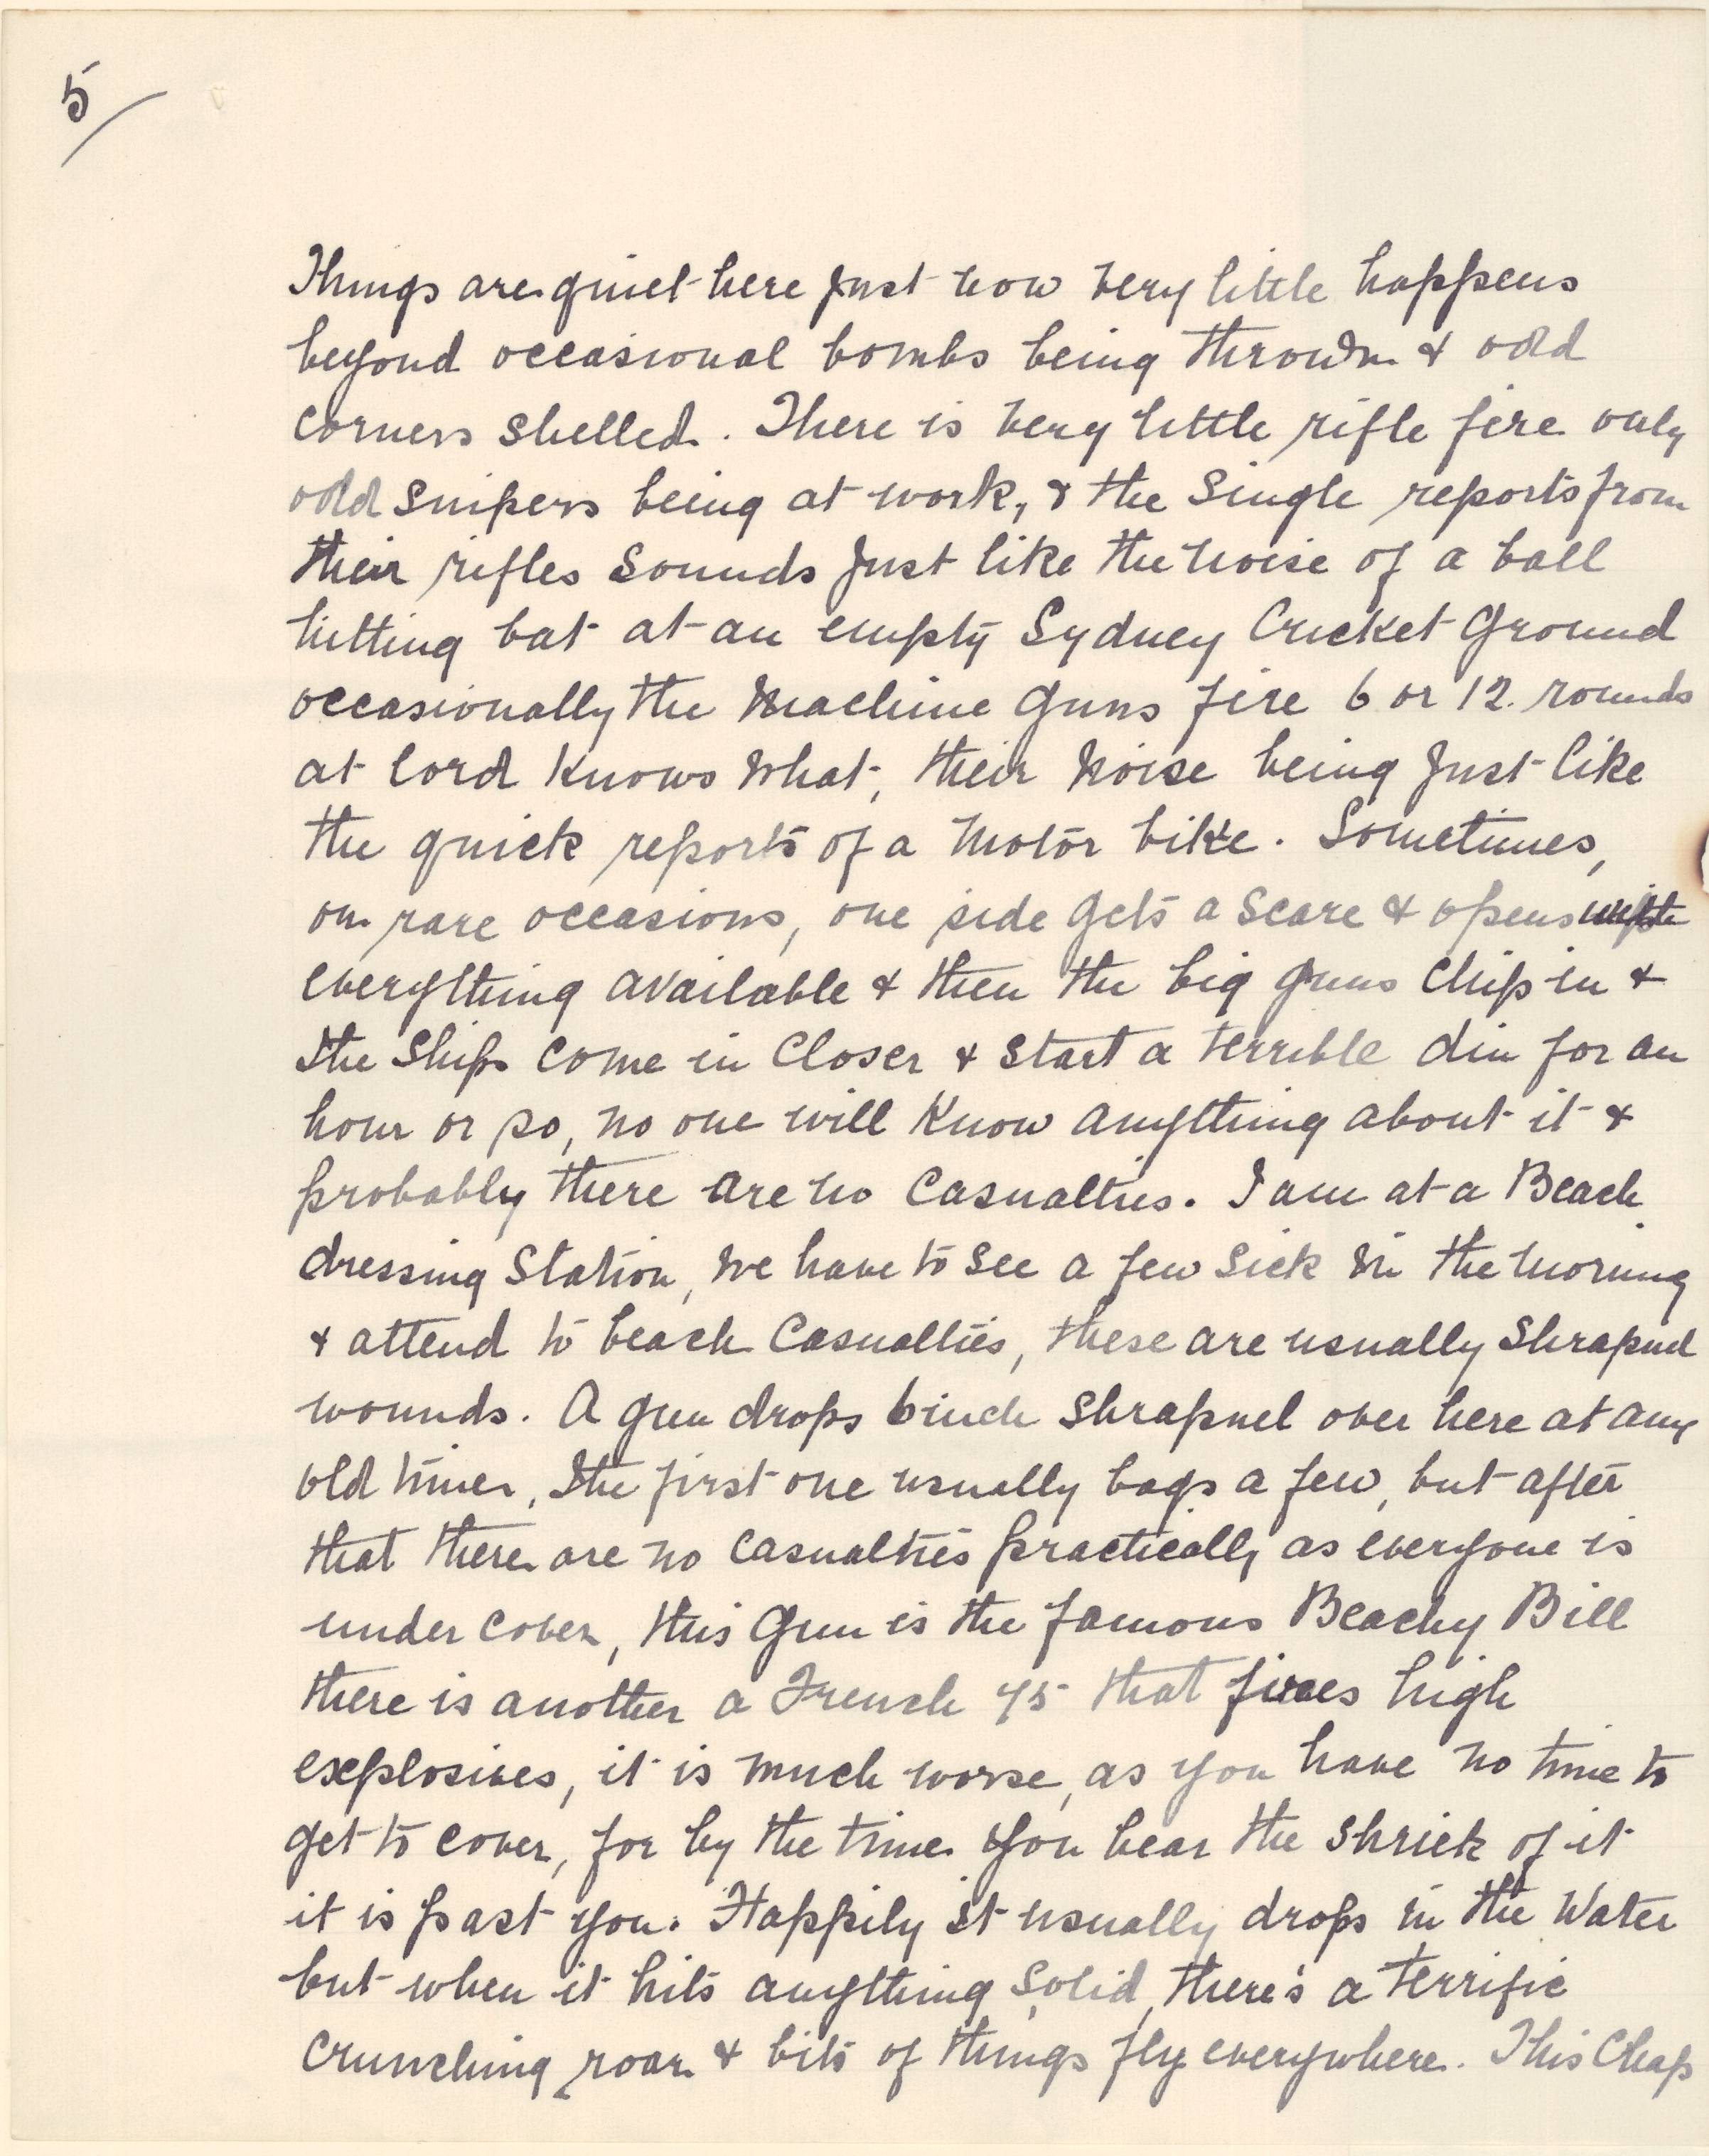 5/
Things are quiet here just now very little happens
beyond occasional bombs being thrown & odd
corners shelled. There is very little rifle fire only
odd snipers being at work, & the single reports from
their rifles sounds just like the noise of a ball
hitting bat at an empty Sydney Cricket Ground
occasionally the machine guns fire 6 or 12 rounds
at lord knows what, their noise being just like
the quick reports of a motor bike. Sometimes,
on rare occasions, one side gets a scare & opens with
everything available & then the big guns chip in &
the ships come in closer & start a terrible din for an
hour or so, no one will know anything about it &
probably there are no casualties. I am at a Beach
dressing station, we have to see a few sick in the morning
& attend to beach casualties, these are usually shrapnel
wounds. A gun drops 6 inch shrapnel over here at any
old time, the first one usually bags a few, but after
that there are no casualties practically as everyone is
under cover, this gun is the famous Beachy Bill
there is another a French 75 that fires high
explosives, it is much worse, as you have no time to
get to cover, for by the time you hear the shriek of it
it is past you. Happily it usually drops in the water
but when it hits anything solid, there's a terrific
crunching roar & bits of things fly everywhere. This chap